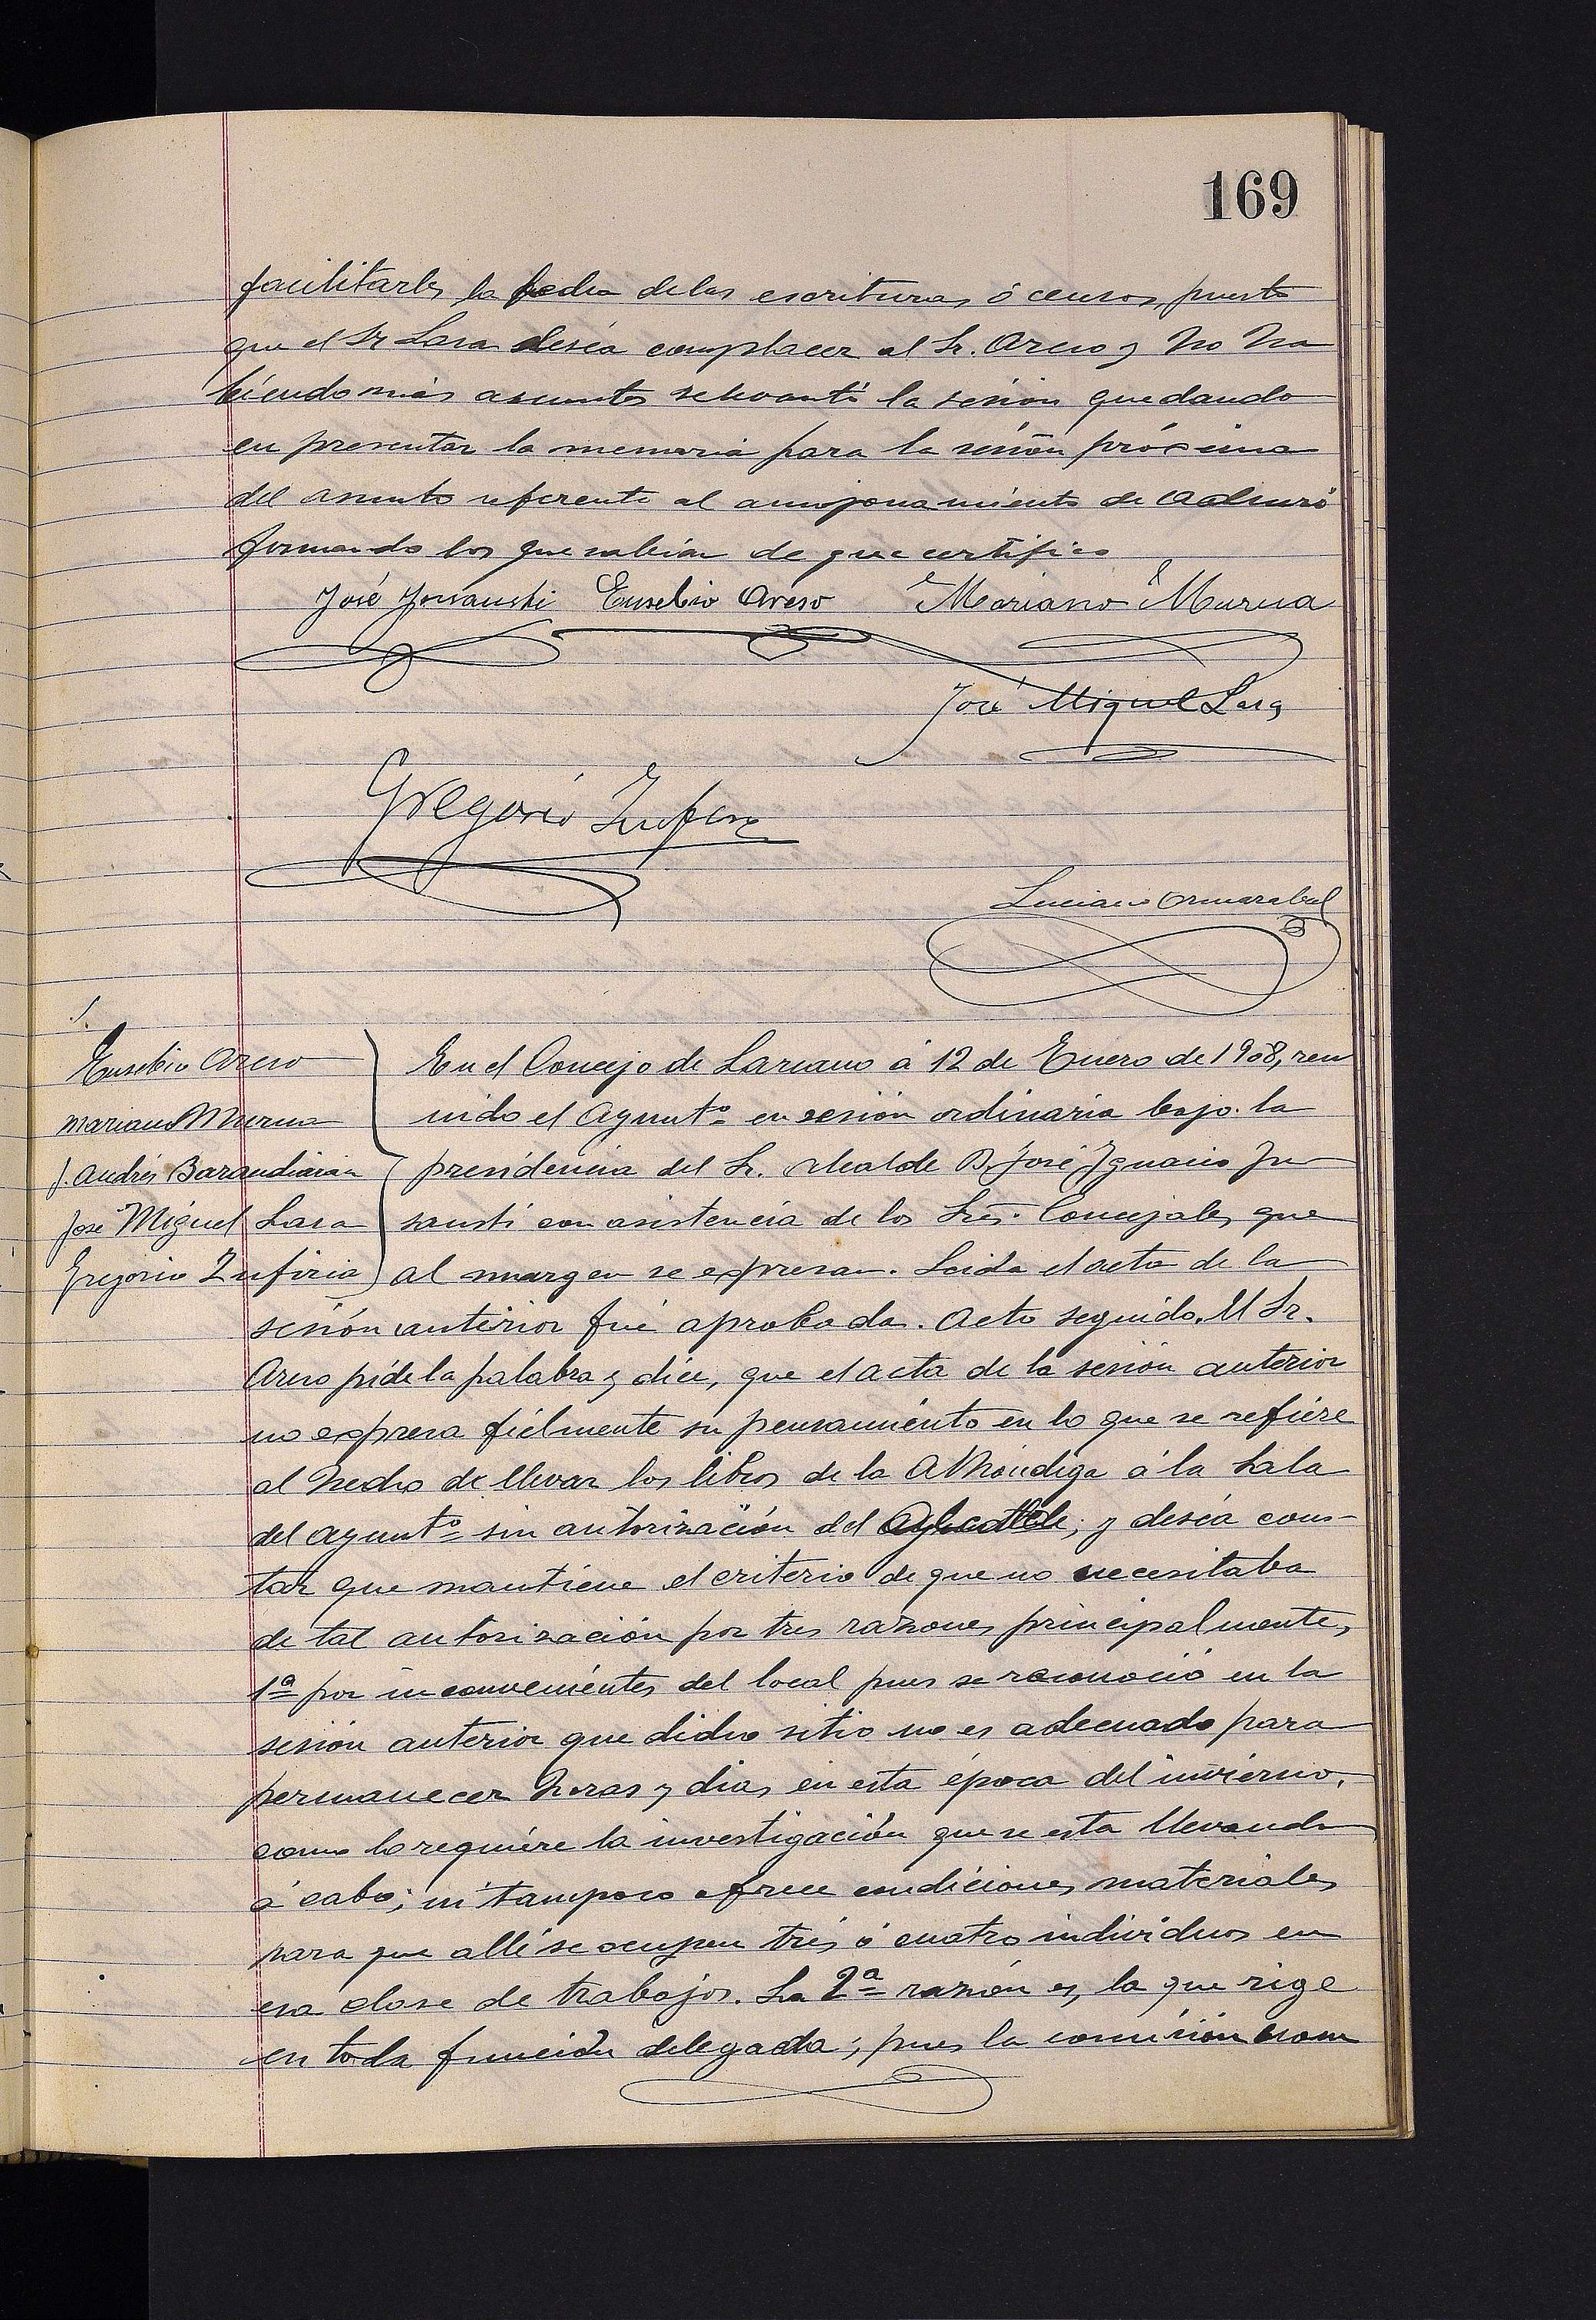 169
facilitarles la fecha delas escrituras ó censos, puesto
que el Sr Lasa deséa complacer al Sr. Areso y no ha
biéndo más asuntos selevantó la sesión quedando
en presentar la memoria para la sesión próxima
del asunto referente al amojonamiénto de
firmando los que sabian de que certifico
José Eusebio Areso Mariano Murua
José Miguel Lasa
Gregorio
Luciano Ormazabal
Eusebio Areso
Mariano Murua
J. Andrés Barandiarán
José Miguel Lasa
Gregorio Zufiria
En el Concejo de Lazcano á 12 de Enero de 1908, reu
nido el Ayuntº en sesión ordinaria bajo la
presidencia del Sr. Alcalde D. José Ignacio In
sausti con asistencia de los Sres. Concejales que
al margen se expresan. Leida el acta de la
sesión anterior fué aprobada. Acto seguido, el Sr.
Areso pide la palabra y dice, que el acta de la sesión anterior
no expresa fielmente su pensamiénto en lo que se refiére
al hecho de llevar los libros de la Alhóndiga á la Sala
del Ayuntº sin autorización del Alcalde; y deséa cons-
tar que mantiene el criterio de que no necesitaba
de tal autorización por tres razones principalmente,
1ª por inconveniéntes del local pues se reconoció en la
sesión anterior que dicho sitio no es adecuado para
permanecer horas y dias en esta época del inviérno,
como lo requiére la investigación que se esta llevando
á cabo; ni tampoco ofrece condiciones materiales
para que allí se ocupen tres ó cuatro individuos en
esa clase de trabajos. La 2ª razón es, la que rige
en toda función delegada; pues la comisión nom